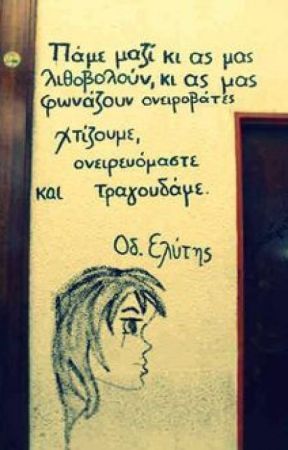 Πάμε μαζί κι ας μας
λιθοβολούν, κι ας μας
φωνάζουν ονειροβάτες
Χτίζουμε,
ονειρευόμαστε
και τραγουδάμε.
Οδ. Ελύτης